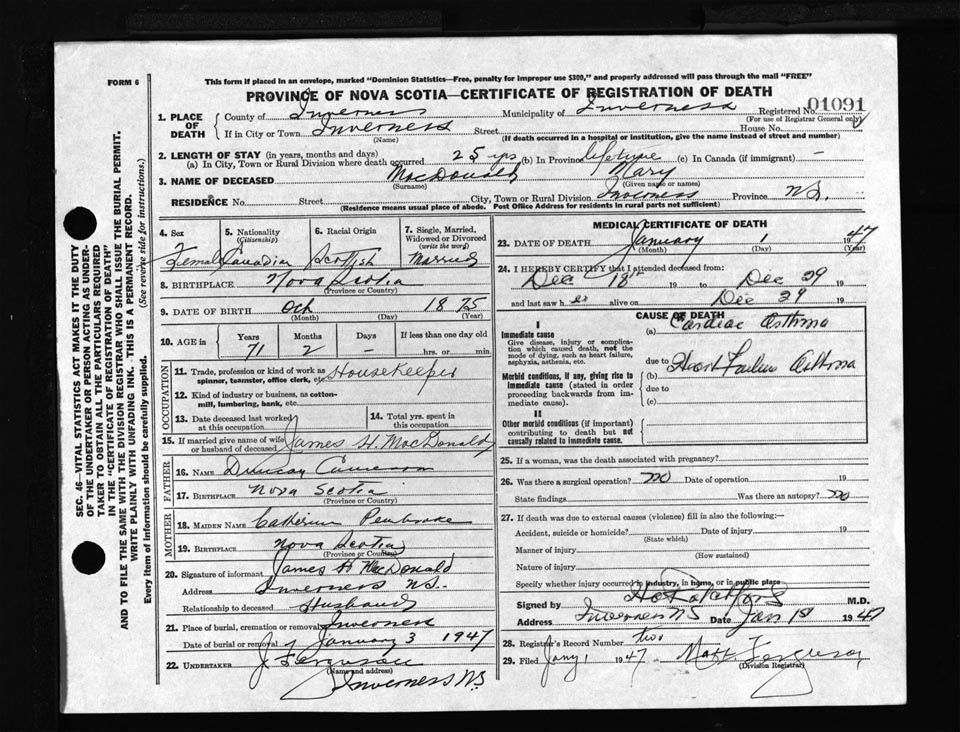 FORM 6
This form if placed in an envelope, marked "Dominion Statistics—Free, penalty for improper use $300," and properly addressed will pass through the mail "FREE"
PROVINCE OF NOVA SCOTIA—CERTIFICATE OF REGISTRATION OF DEATH
1. PLACE OF DEATH County of Inverness Municipality of Inverness Registered No. 01091
(For use of Registrar General only)
If in City or Town Inverness Street House No.
(Name) (If death occurred in a hospital or institution, give the name instead of street and number)
2. LENGTH OF STAY (in years, months and days)
(a) In City, Town or Rural Division where death occurred 25 yrs (b) In Province lifetime (c) In Canada (if immigrant) —
3. NAME OF DECEASED MacDonald Mary
(Surname) (Given name or names)
RESIDENCE No. Street City, Town or Rural Division Inverness Province N.S.
(Residence means usual place of abode. Post Office Address for residents in rural parts not sufficient)
SEC. 46—VITAL STATISTICS ACT MAKES IT THE DUTY
OF THE UNDERTAKER OR PERSON ACTING AS UNDER-
TAKER TO OBTAIN ALL THE PARTICULARS REQUIRED
IN THE "CERTIFICATE OF REGISTRATION OF DEATH"
AND TO FILE THE SAME WITH THE DIVISION REGISTRAR WHO SHALL ISSUE THE BURIAL PERMIT.
WRITE PLAINLY WITH UNFADING INK. THIS IS A PERMANENT RECORD.
Every item of information should be carefully supplied. (See reverse side for instructions.)
4. Sex Female
5. Nationality (Citizenship) Canadian
6. Racial Origin Scottish
7. Single, Married, Widowed or Divorced (write the word) Married
8. BIRTHPLACE Nova Scotia
(Province or Country)
9. DATE OF BIRTH Oct 1875
(Month) (Day) (Year)
10. AGE in Years 71 Months 2 Days — If less than one day old hrs. or min.
OCCUPATION
11. Trade, profession or kind of work as spinner, teamster, office clerk, etc. Housekeeper
12. Kind of industry or business, as cotton-mill, lumbering, bank, etc.
13. Date deceased last worked at this occupation
14. Total yrs. spent in this occupation
15. If married give name of wife or husband of deceased James H. MacDonald
FATHER
16. NAME Duncan Cameron
17. BIRTHPLACE Nova Scotia
(Province or Country)
MOTHER
18. MAIDEN NAME Catherine Pembroke
19. BIRTHPLACE Nova Scotia
(Province or Country)
20. Signature of informant James H MacDonald
Address Inverness N.S.
Relationship to deceased Husband
21. Place of burial, cremation or removal Inverness
Date of burial or removal January 3 1947
22. UNDERTAKER J. Ferguson
(Name and address)
Inverness N.S
MEDICAL CERTIFICATE OF DEATH
23. DATE OF DEATH January 1 1947
(Month) (Day) (Year)
24. I HEREBY CERTIFY that I attended deceased from:
Dec 18th 19 to Dec 29 19
and last saw her alive on Dec 29 19
CAUSE OF DEATH
I
Immediate cause
Give disease, injury or complication which caused death, not the mode of dying, such as heart failure, asphyxia, asthenia, etc.
(a) Cardiac Asthma
due to
Morbid conditions, if any, giving rise to immediate cause (stated in order proceeding backwards from immediate cause).
(b) Heart Failure Asthma
due to
(c)
II
Other morbid conditions (if important) contributing to death but not causally related to immediate cause.
25. If a woman, was the death associated with pregnancy?
26. Was there a surgical operation? no Date of operation 19
State findings Was there an autopsy? no
27. If death was due to external causes (violence) fill in also the following:—
Accident, suicide or homicide? Date of injury 19
(State which)
Manner of injury
(How sustained)
Nature of injury
Specify whether injury occurred in industry, in home, or in public place
Signed by M.D.
Address Inverness N S Date Jan 1st 1947
28. Registrar's Record Number two
29. Filed Jany 1 1947 Matt. Ferguson
(Division Registrar)